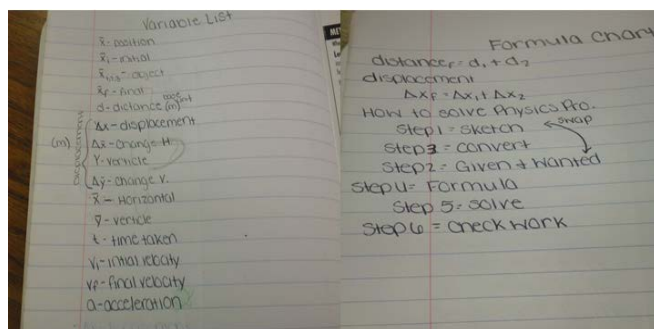 Variable List
x̄ - position
x̄ᵢ - initial
object
x̄f - final
d - distance (m)
Δx - displacement
(m)
Δx̄ - change H.
Y - verticle
Δȳ - change V.
x̄ - Horizontal
ȳ - verticle
t - time taken
vi - initial velocity
vf - final velocity
a - acceleration
MIT
Formula Chart
distanceF = d1 + d2
displacement
ΔxF = Δx1 + Δx2
How to solve Physics Pro.
Step 1 = sketch
swap
Step 3 = convert
Step 2 = Given + Wanted
Step 4 = Formula
Step 5 = solve
Step 6 = check work